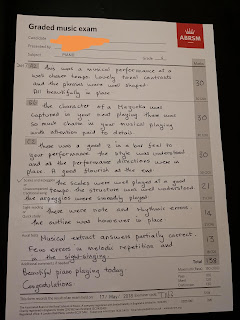 Graded music exam
ABRSM
Candidate
Presented by
Subject PIANO
this was a musical performance at a
well chosen tempo. Lovely tonal contrasts
and the phrases were well shaped.
All beautifully in place
30
the character of a Mazurka was
captured in your neat playing. There was
so much charm in your musical playing
with attention paid to detail.
30
there was a good 2 in a bar feel to
your performance. The style was understood
and all the performance directions were in
place. A good flourish at the end
30
the scales were well played at a good
tempo. The structure was well understood
the arpeggios were smoothly played
21
there were note and rhythmic errors.
The outline was however in place.
14
Musical extract answers partially correct.
Few errors in melodic repetition and
in the sight-singing.
13
138
Beautiful piano playing today.
Congratulations.